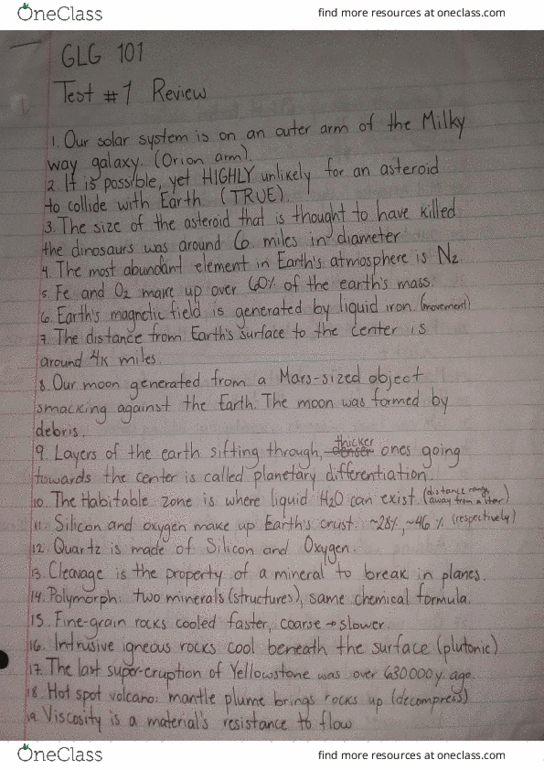 OneClass find more resources at oneclass.com
GLG 101
Test #1 Review
1. Our solar system is on an outer arm of the Milky
way galaxy. (Orion arm).
2. It is possible, yet HIGHLY unlikely for an asteroid
to collide with Earth. (TRUE).
3. The size of the asteroid that is thought to have killed
the dinosaurs was around 6 miles in diameter
4. The most abundant element in Earth's atmosphere is N2
5. Fe and O2 make up over 60% of the earth's mass.
6. Earth's magnetic field is generated by liquid iron. (movement)
7. The distance from Earth's surface to the center is
around 4K miles.
8. Our moon generated from a Mars-sized object
smacking against the Earth. The moon was formed by
debris.
9. Layers of the earth sifting through, denser thicker ones going
towards the center is called planetary differentiation.
10. The Habitable zone is where liquid H2O can exist. (distance range away from a star)
11. Silicon and oxygen make up Earth's crust. ~28%, ~46% (respectively)
12. Quartz is made of Silicon and Oxygen.
13. Cleavage is the property of a mineral to break in planes.
14. Polymorph: two minerals (structures), same chemical formula.
15. Fine-grain rocks cooled faster, coarse → slower.
16. Intrusive igneous rocks cool beneath the surface (plutonic)
17. The last super-eruption of Yellowstone was over 630000 y. ago.
18. Hot spot volcano: mantle plume brings rocks up (decompress)
19. Viscosity is a material's resistance to flow
OneClass find more resources at oneclass.com